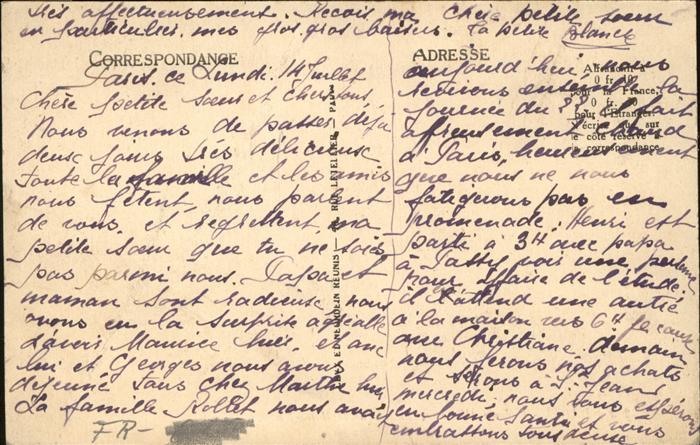 très affectueusement. Reçois ma chère petite sœur
en particulier, mes gros gros baisers. Ta petite Blanche
CORRESPONDANCE
Paris. ce Lundi. 14 Juillet
Chère petite sœur et chers tous,
Nous venons de passer déjà
deux jours très délicieux
Toute la famille et les amis
nous fêtent, nous parlent
de vous, et regrettent, ma
petite sœur que tu ne sois
pas parmi nous. Papa et
maman sont radieux, nous
avons eu la surprise agréable
d'avoir Maurice hier, et avec
lui et Georges nous avons
déjeuné tous chez Marthe hier
La famille Rollet nous avait
FR-
ADRESSE
aujourd'hui, nous
la
journée du il fait
affreusement chaud
à Paris, heureusement
que nous ne nous
fatiguons pas en
promenade. Henri est
parti à 3H avec papa
à Passy voir une personne
pour affaire de l'étude.
Il attend une autre
à la maison vers 6H
que Christiane. demain
nous ferons nos achats
et serons à St Jean
mercredi. nous vous espérons
en bonne santé et vous
embrassons tous deux
Affranchir à
0 fr.
pour la France,
0 fr.
pour l'Etranger
si écrit sur
le côté réservé à
la correspondance